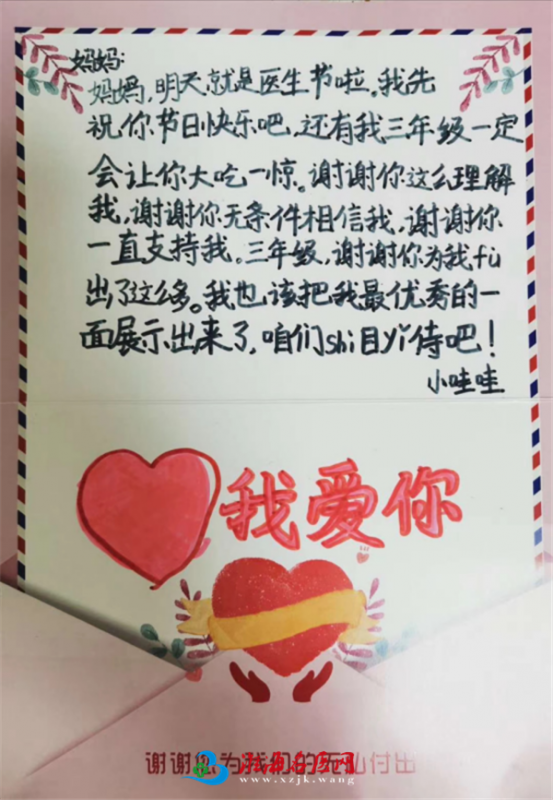 妈妈:
妈妈,明天就是医生节啦。我先
祝你节日快乐吧,还有我三年级一定
会让你大吃一惊。谢谢你这么理解
我,谢谢你无条件相信我,谢谢你
一直支持我。三年级,谢谢你为我fù
出了这么多。我也该把我最优秀的一
面展示出来了,咱们shi目yi侍吧!
小哇哇
我爱你
谢谢您为我们的无私付出
www.xzjk.wang